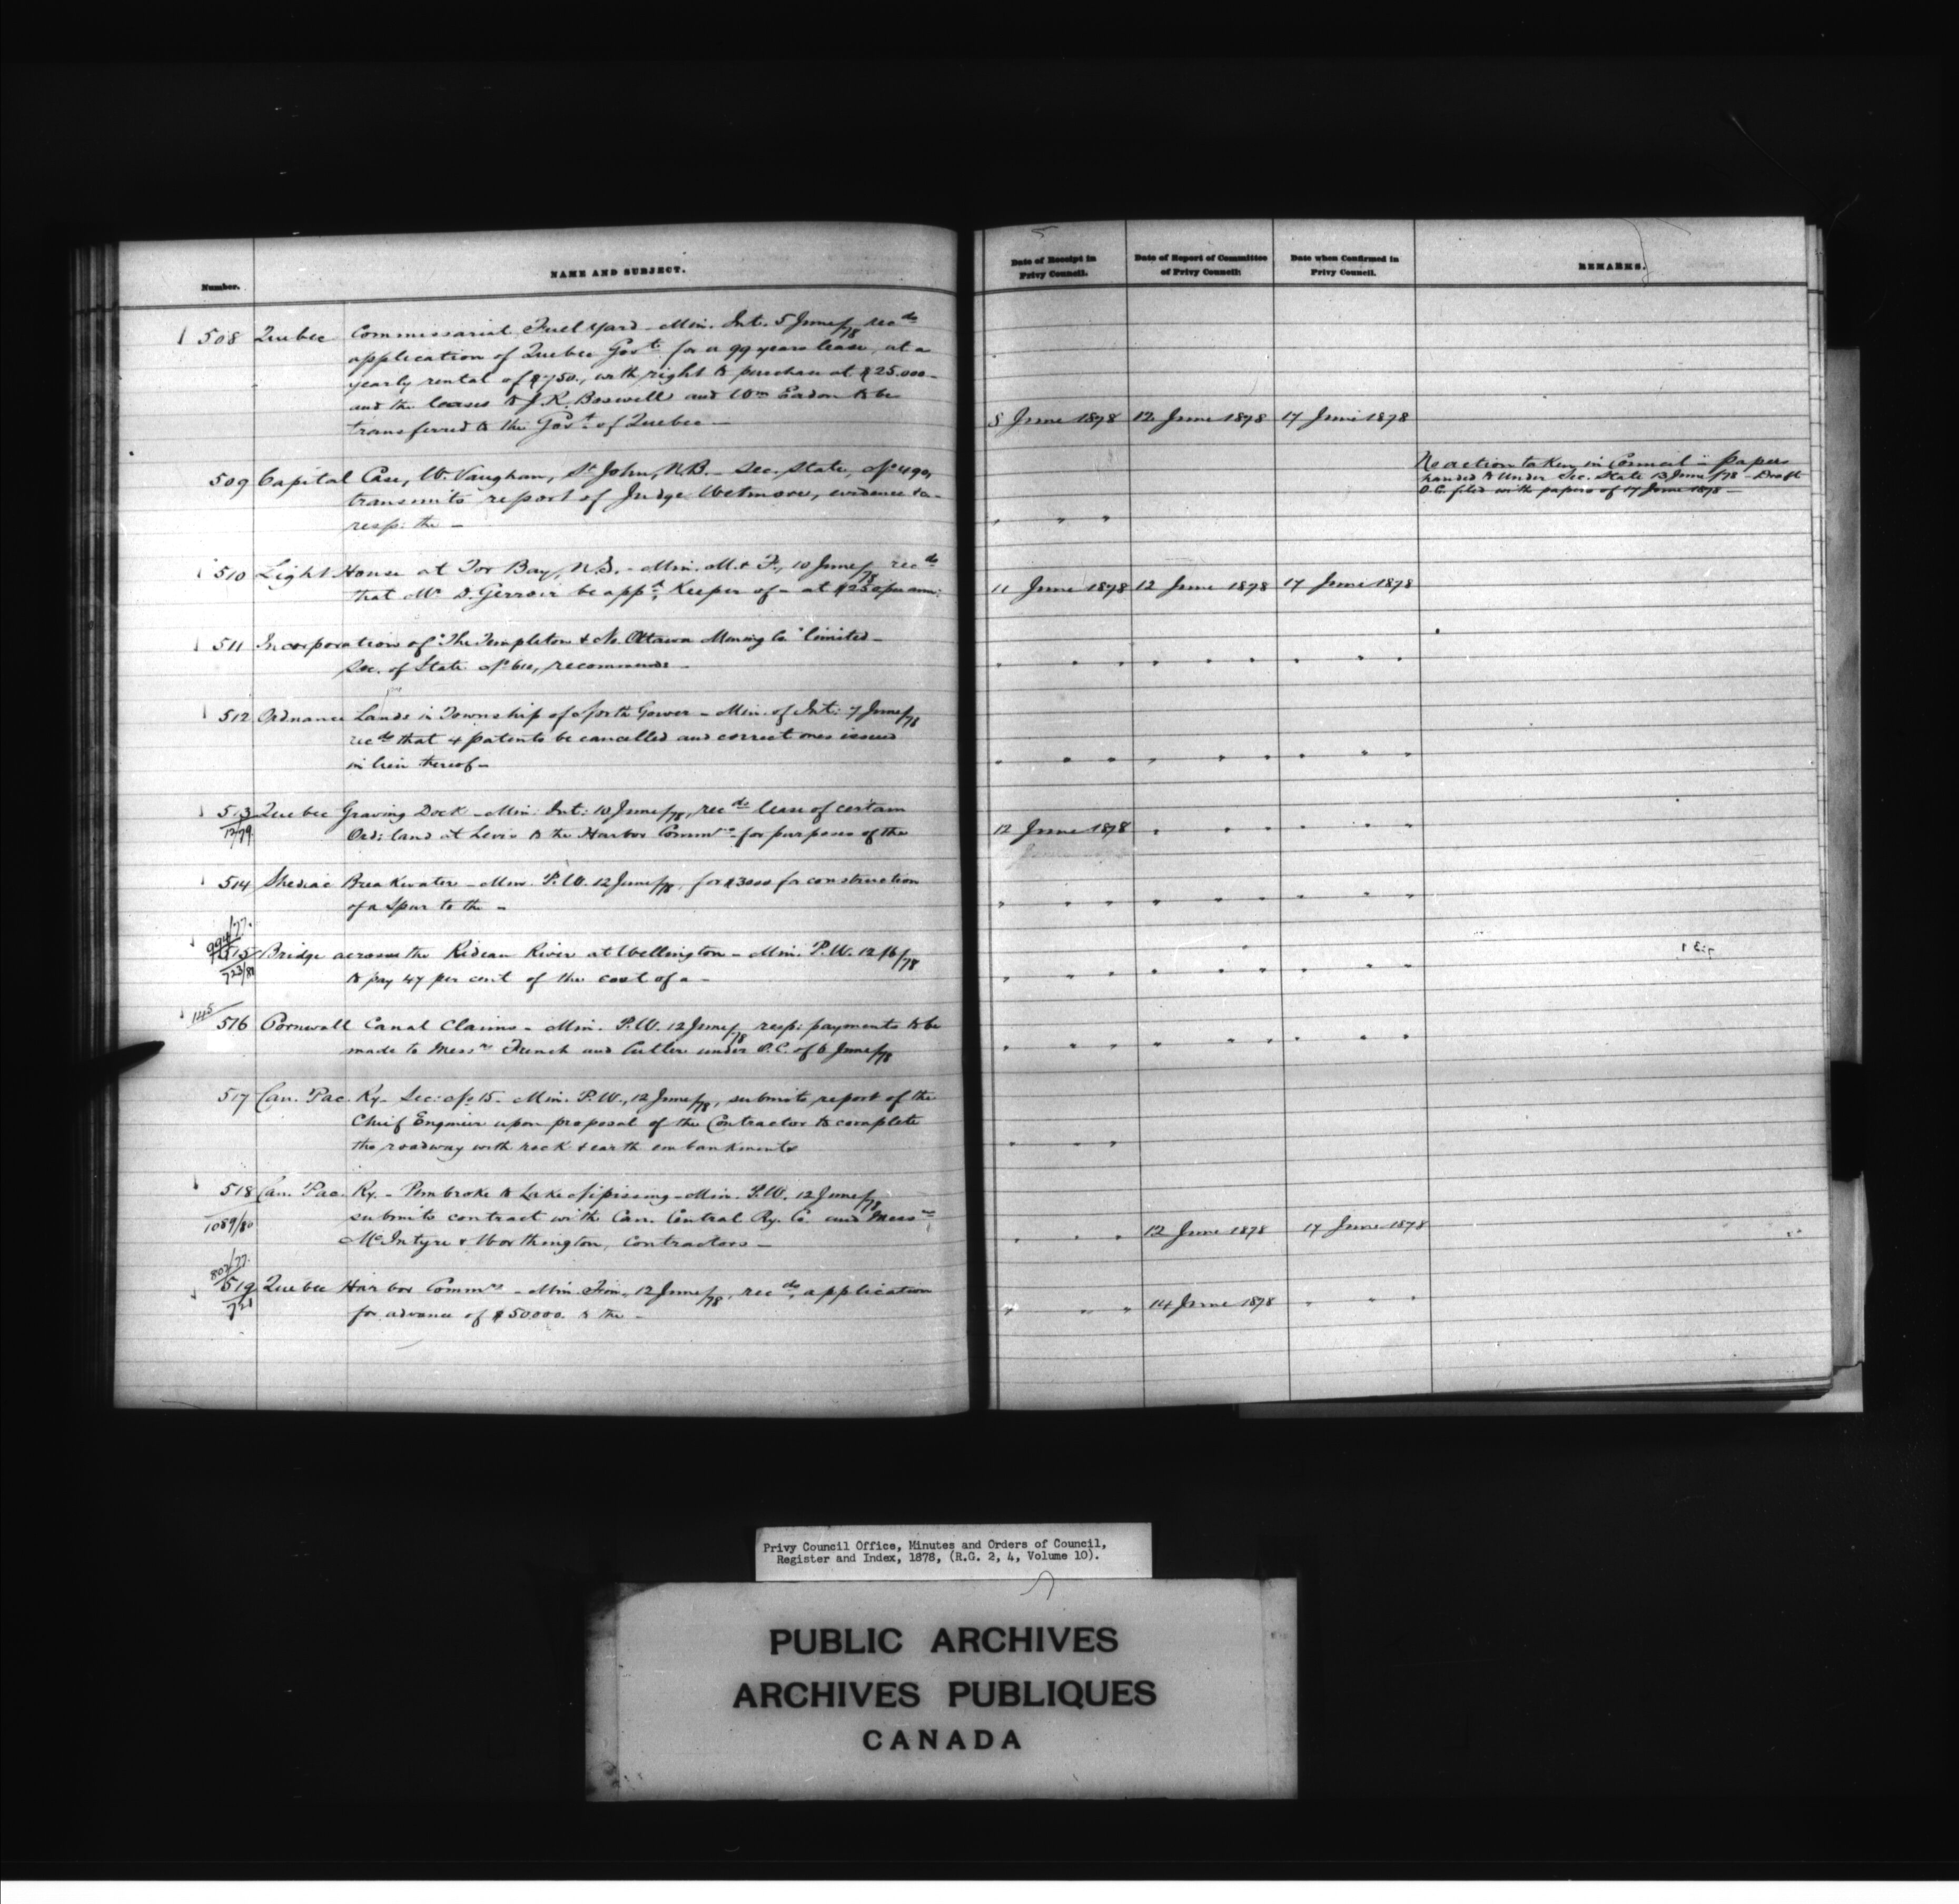 Number.
NAME AND SUBJECT.
508 Quebec Commissariat Fuel Yard - Min. Int. 5 June/78 recds
application of Quebec Govt. for a 99 years lease, at a
yearly rental of $750., with right to purchase at $25.000 -
and the leases to J.K. Boswell and Wm Eadon to be
transferred to the Govt. of Quebec -
509 Capital Case, W. Vaughan, St John, N.B. - Sec. State, No 490,
transmits report of Judge Wetmore, evidence &c -
resp: the -
510 Light House at Tor Bay, N.S. - Min. M. & F., 10 June/78 recds
that Mr D. Gerroir be appd. Keeper of - at $250 per ann:
511 Incorporation of "The Templeton & No. Ottawa Mining Co" limited -
Sec. of State No 611, recommends -
512 Ordnance Lands in Township of North Gower - Min. of Int: 7 June/78
recds that 4 patents be cancelled and correct ones issued
in lieu thereof -
513 Quebec Graving Dock - Min. Int: 10 June/78, recds lease of certain
12/79 Ord: land at Levis to the Harbor Commrs - for purposes of the
514 Shediac Breakwater - Min. P.W. 12 June/78, for $3000 for construction
of a Spur to the -
994/77.
515 Bridge across the Rideau River at Wellington - Min. P.W. 12/6/78
723/81 to pay 47 per cent of the cost of a -
145
516 Cornwall Canal Claims - Min. P.W. 12 June/78 resp: payments to be
made to Messrs French and Cutler under O.C. of 6 June/78
517 Can. Pac. Ry - Sec: No 15 - Min. P.W., 12 June/78, submits report of the
Chief Engineer upon proposal of the Contractor to complete
the roadway with rock & earth embankments
518 Can. Pac. Ry. - Pembroke to Lake Nipissing - Min. P.W. 12 June/78
1089/80 submits contract with Can. Central Ry. Co. and Messrs
McIntyre & Worthington, Contractors -
802/77.
519 Quebec Harbor Commrs - Min. Fin., 12 June/78, recds, application
for advance of $50000. to the -
Date of Receipt in Privy Council.
Date of Report of Committee of Privy Council:
Date when Confirmed in Privy Council.
REMARKS.
8 June 1878 12 June 1878 17 June 1878
No action taken in Council - Papers
handed to Under Sec. State 13 June/78 - Draft
O.C. filed with papers of 17 June 1878 -
" " "
11 June 1878 12 June 1878 17 June 1878
" " " " " " " " "
" " " " " " " " "
12 June 1878 " " " " " "
" " " " " " " " "
" " " " " " " " "
" " " " " " " " "
" " "
" " " 12 June 1878 17 June 1878
" " " 14 June 1878 " " "
Privy Council Office, Minutes and Orders of Council,
Register and Index, 1878, (R.G. 2, 4, Volume 10).
PUBLIC ARCHIVES
ARCHIVES PUBLIQUES
CANADA